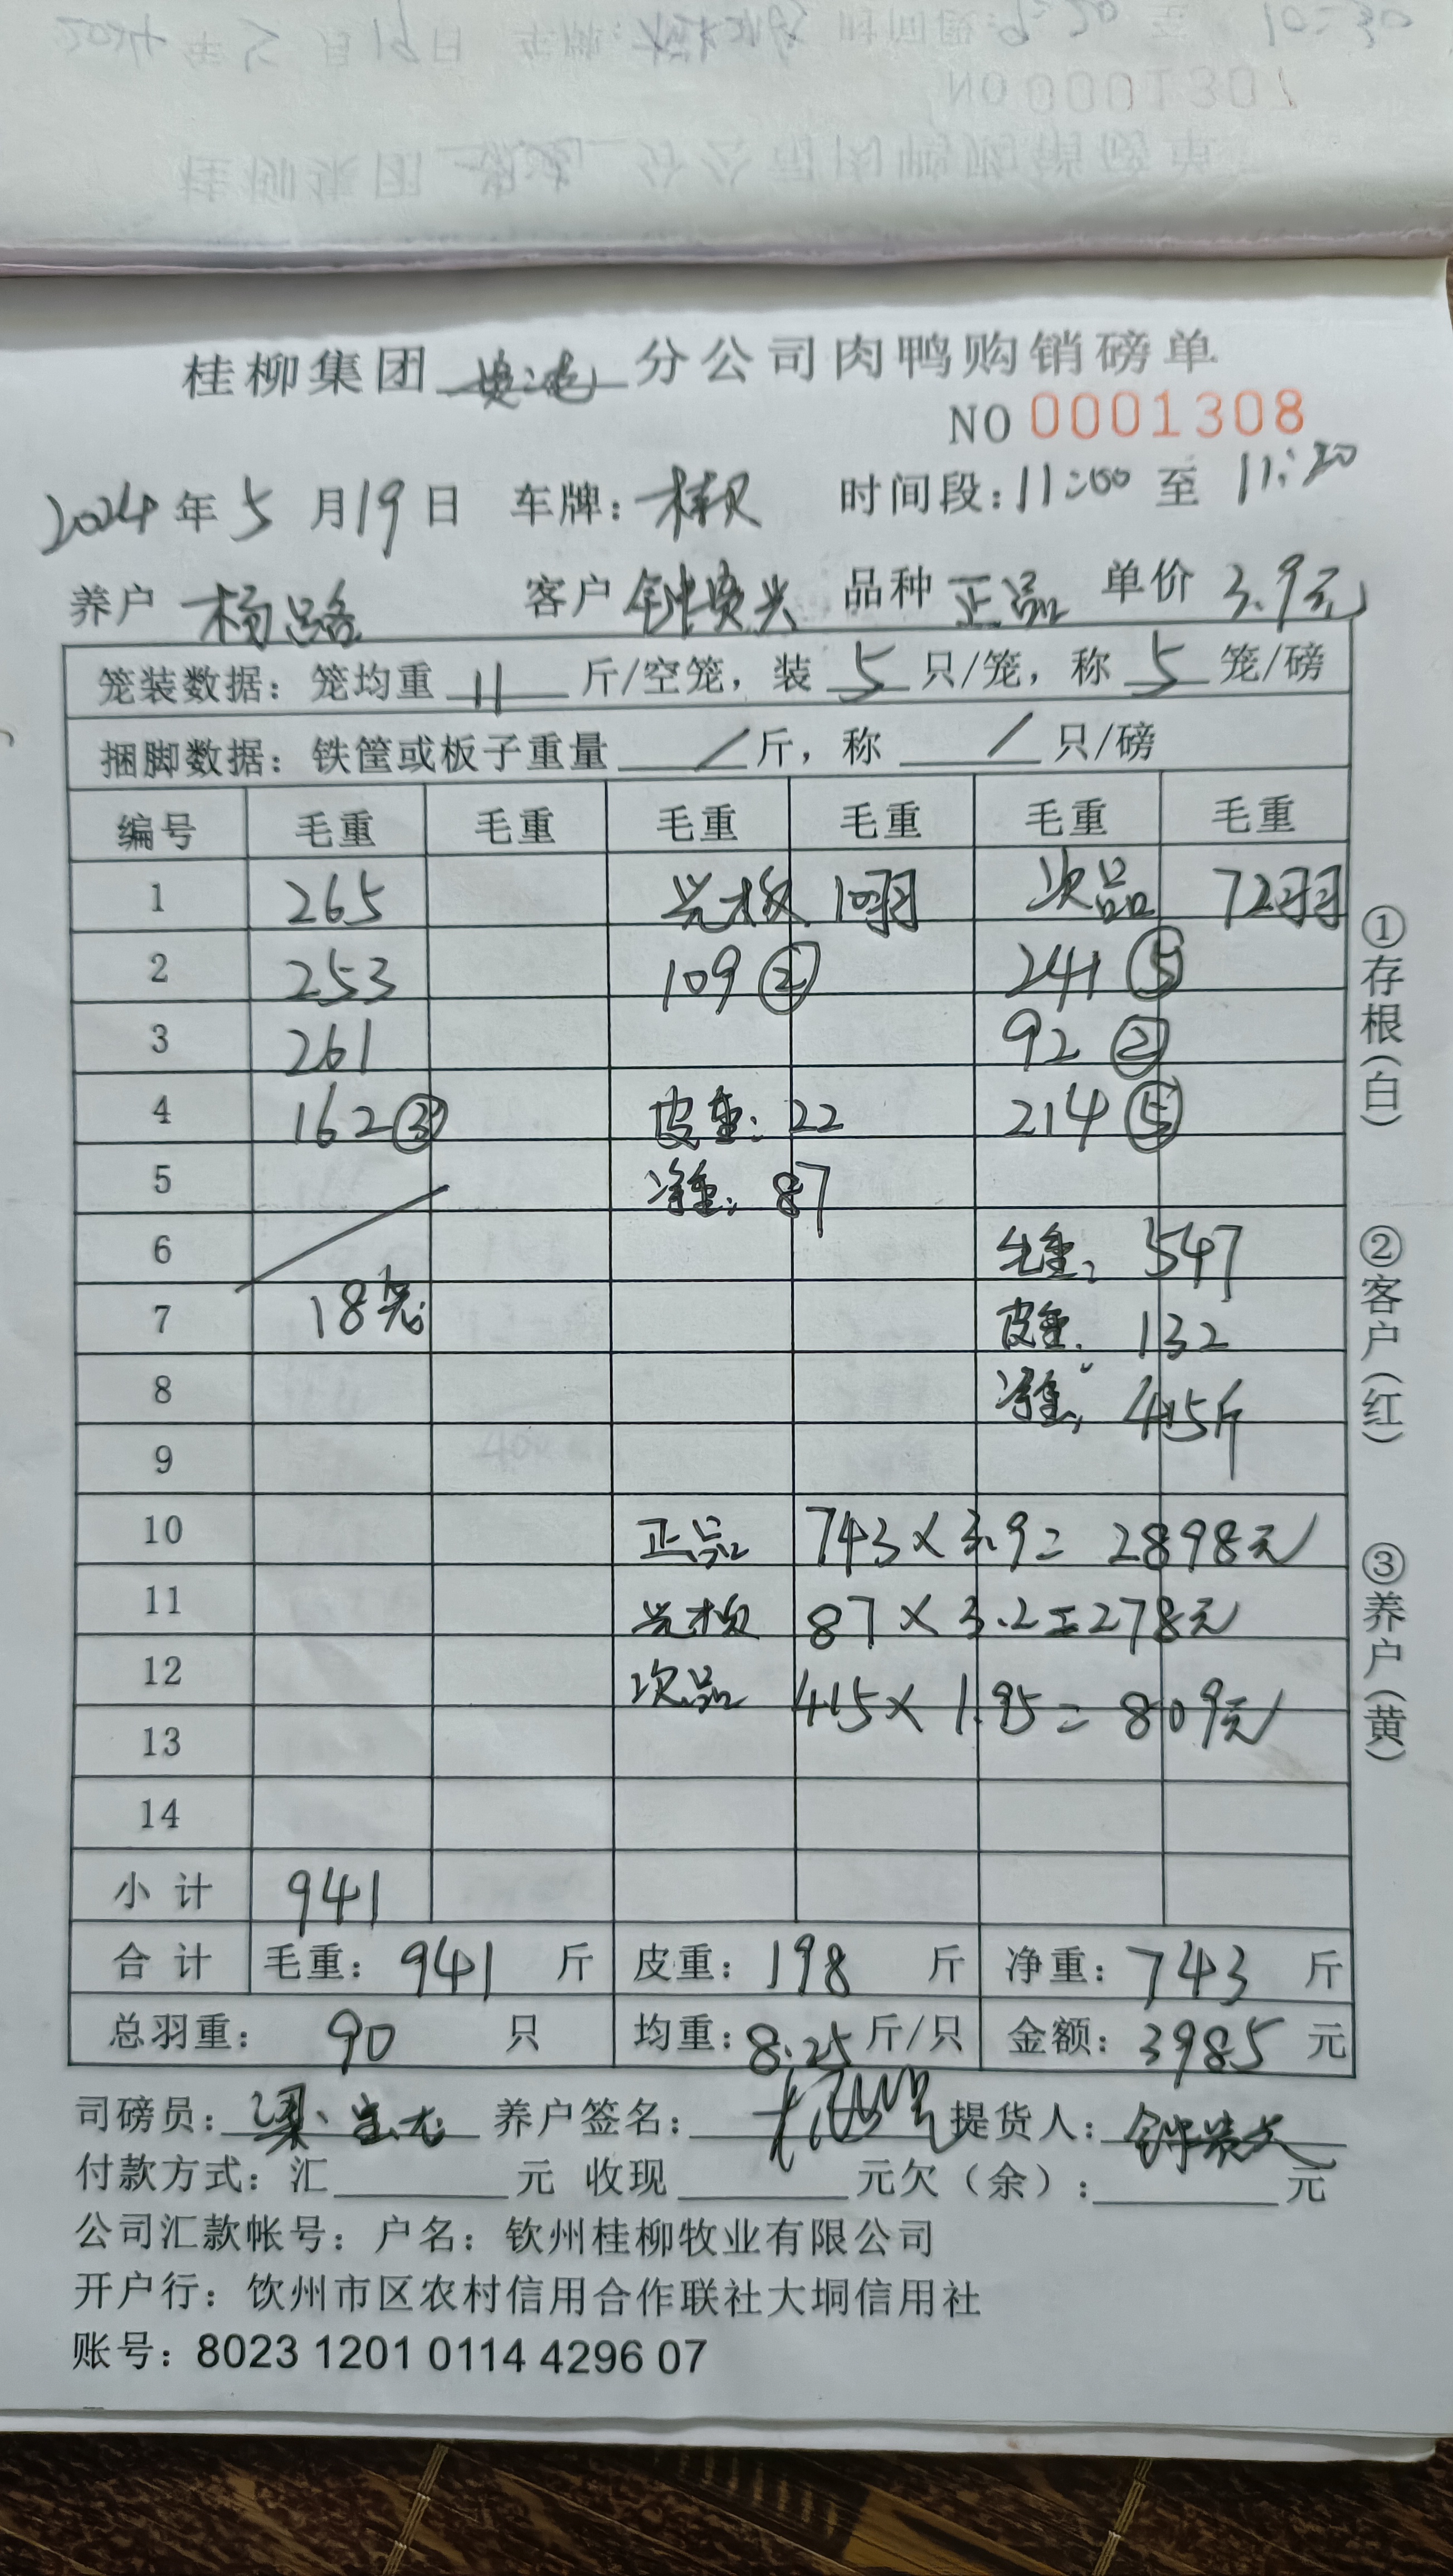 桂柳集团 分公司肉鸭购销磅单
NO 0001308
2024年5月19日 车牌: 时间段:11:00 至 11:20
养户 杨 客户 钟 兴 品种 正品 单价 3.9元
笼装数据: 笼均重 11 斤/空笼, 装 5 只/笼, 称 5 笼/磅
捆脚数据: 铁筐或板子重量 / 斤, 称 / 只/磅
编号 毛重 毛重 毛重 毛重 毛重 毛重
1 265 10羽 次品 72羽
2 253 109② 241⑤
3 261 92②
4 162③ 皮重: 22 214⑤
5 净重: 87
6 毛重: 547
7 18笼 皮重: 132
8 净重: 415斤
9
10 正品 743×3.9=2898元
11 87×3.2=278元
12 次品 415×1.95=809元
13
14
小计 941
合计 毛重: 941 斤 皮重: 198 斤 净重: 743 斤
总羽重: 90 只 均重: 8.25 斤/只 金额: 3985 元
司磅员: 梁 养户签名: 提货人: 钟
付款方式: 汇 元 收现 元欠(余): 元
公司汇款帐号: 户名: 钦州桂柳牧业有限公司
开户行: 钦州市区农村信用合作联社大垌信用社
账号: 8023 1201 0114 4296 07
①存根(白)
②客户(红)
③养户(黄)